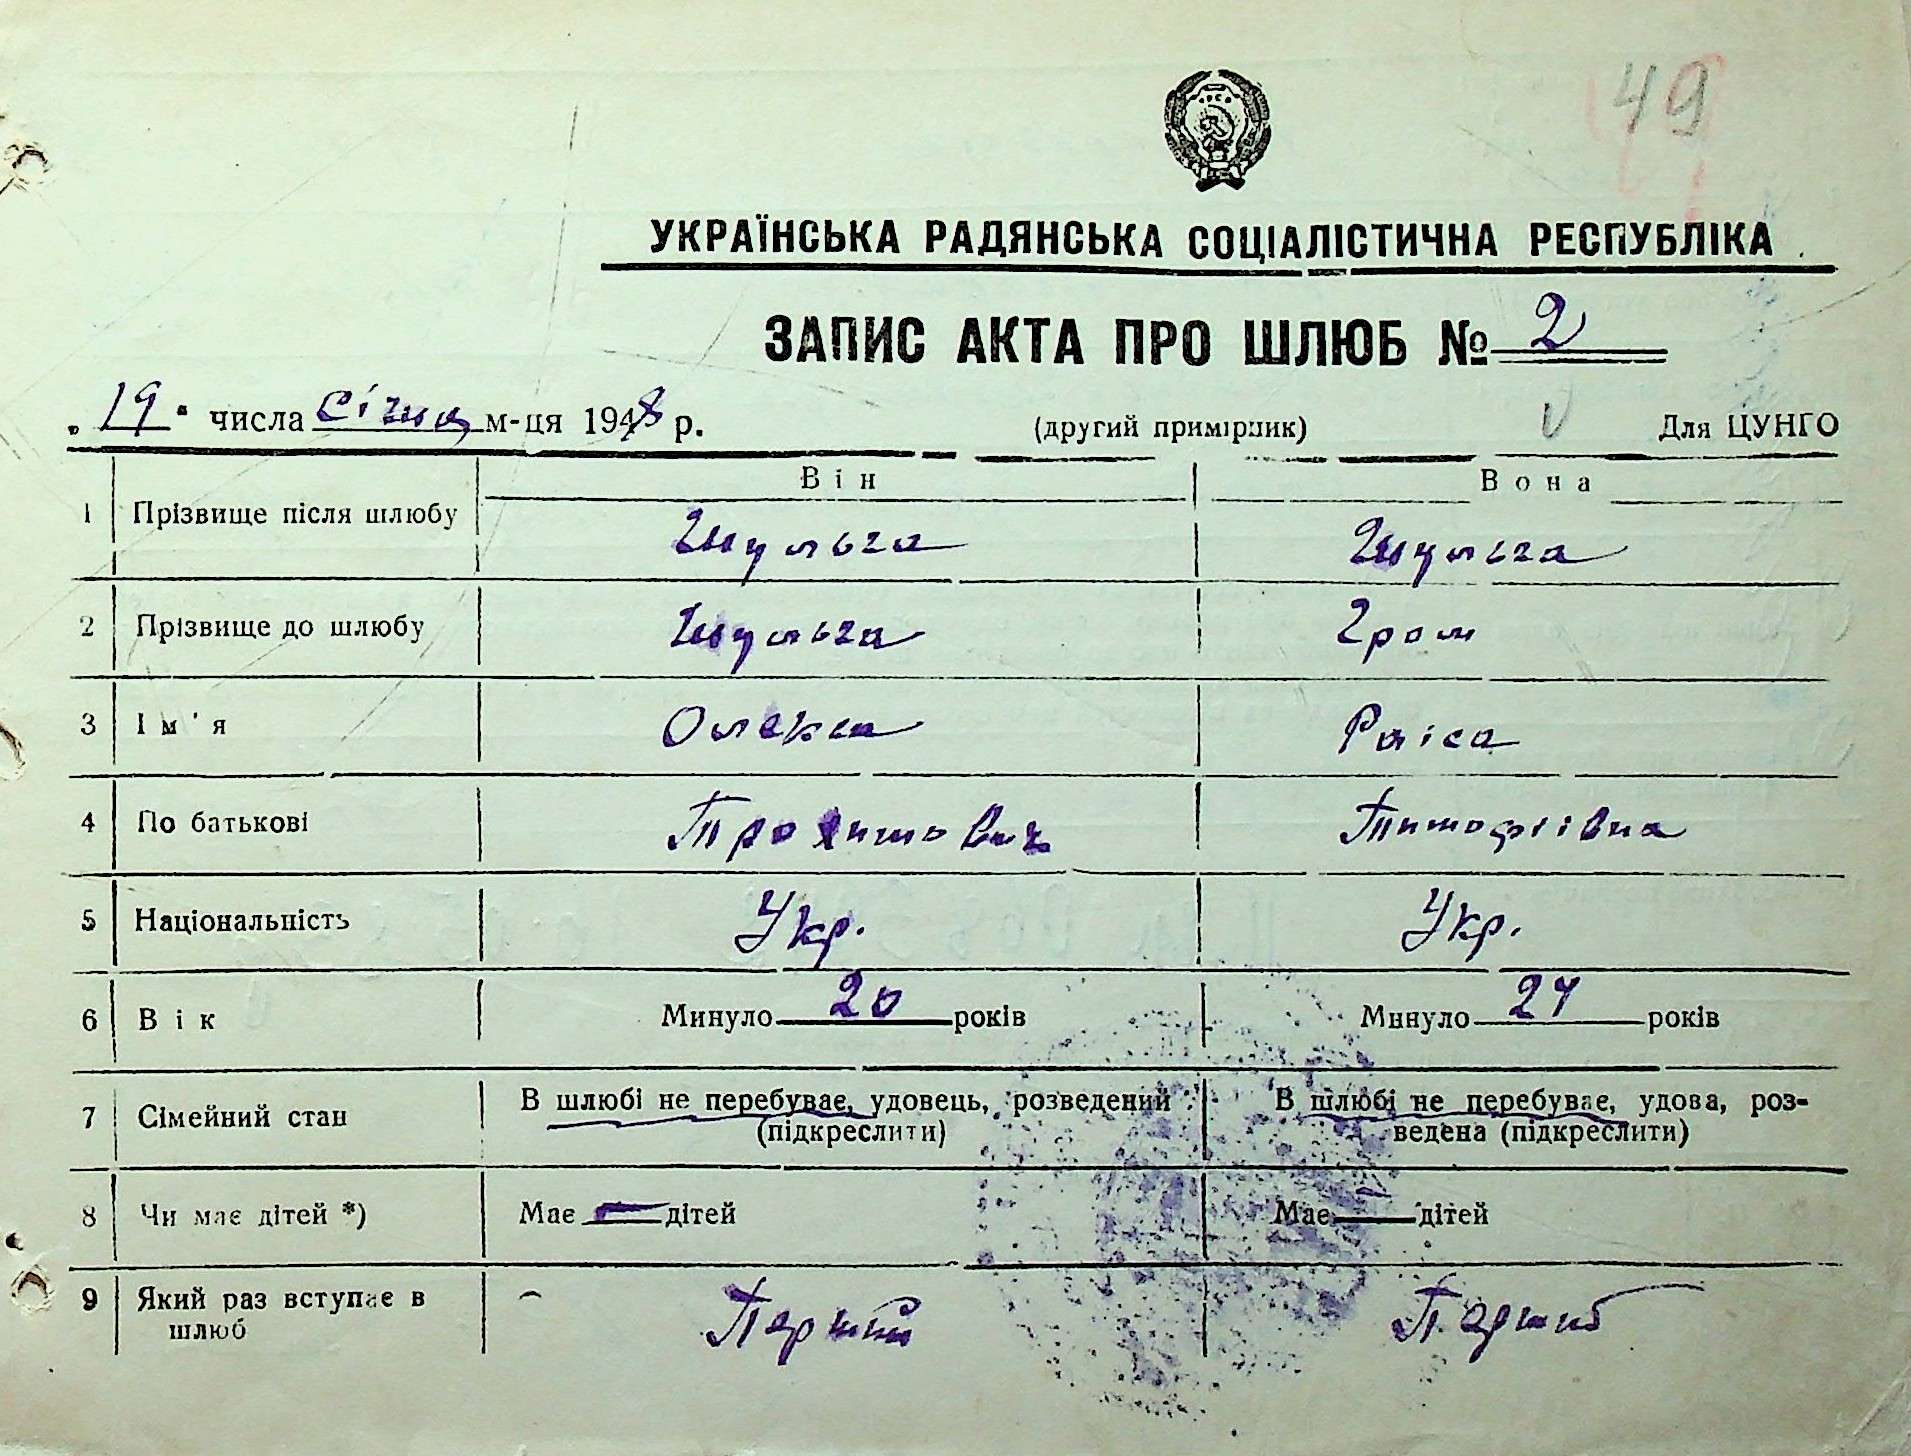 49
УКРАЇНСЬКА РАДЯНСЬКА СОЦІАЛІСТИЧНА РЕСПУБЛІКА
ЗАПИС АКТА ПРО ШЛЮБ № 2
„19" числа січня м-ця 1948 р. (другий примірник) Для ЦУНГО
Він Вона
1 Прізвище після шлюбу Шульга Шульга
2 Прізвище до шлюбу Шульга Гром
3 Ім'я Олекса Раіса
4 По батькові Трохимович Тимофіївна
5 Національність Укр. Укр.
6 Вік Минуло 20 років Минуло 24 років
7 Сімейний стан В шлюбі не перебуває, удовець, розведений (підкреслити) В шлюбі не перебуває, удова, роз-
ведена (підкреслити)
8 Чи має дітей *) Має — дітей Має — дітей
9 Який раз вступає в шлюб Перший Перший